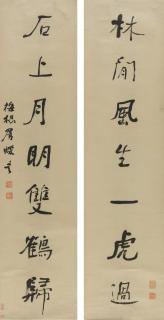 林間風生一虎過
石上月明雙鶴歸